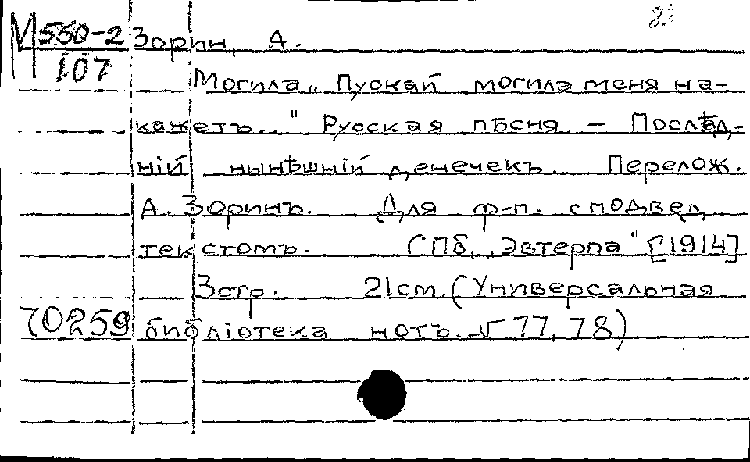 М 550-2 Зорин, А.
107
Могила „Пускай могила меня на-
кажетъ.." Русская пѣсня – Послѣд-
ній нынѣшній денечекъ. Перелож.
А. Зоринъ. Для ф-п. с подвед.
текстомъ. СПб, „Эвтерпа" [1914]
3стр. 21см. (Универсальная
70259 библіотека нотъ. № 77, 78)